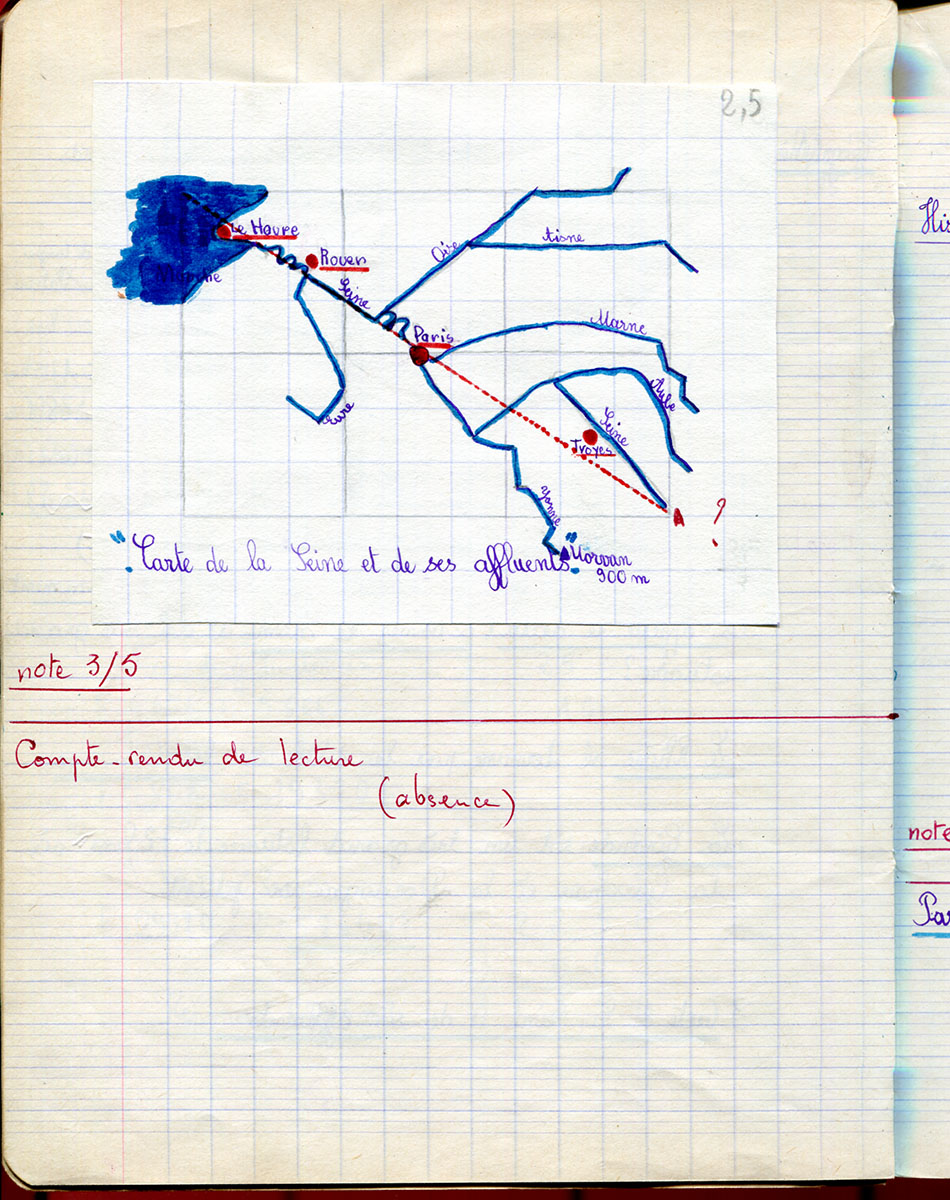 2,5
Le Havre
Rouen
Manche
Seine
Oise
Aisne
Paris
Marne
Aube
Seine
Troyes
Eure
Yonne
?
"Carte de la Seine et de ses affluents."
Morvan
900 m
note 3/5
Compte-rendu de lecture
(absence)
His
note
Par